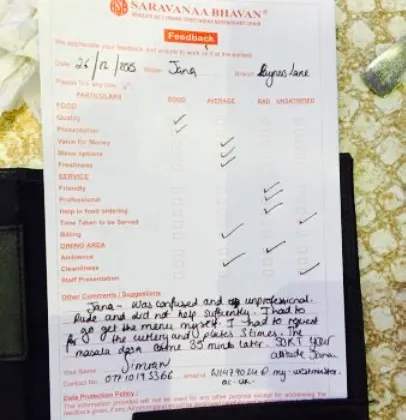 SARAVANAA BHAVAN®
WORLD'S NO.1 INDIAN VEGETARIAN RESTAURANT CHAIN
Feedback
We appreciate your feedback and ensure to work on it at the earliest.
Date: 26/12/2015 Waiter Jana Branch Rayners Lane
Please tick any one ✓
PARTICULARS GOOD AVERAGE BAD UNSATISFIED
FOOD
Quality ✓
Presentation ✓
Value for Money ✓
Menu options ✓
Freshness ✓
SERVICE
Friendly ✓
Professional ✓
Help in food ordering ✓
Time Taken to be Served ✓
Billing ✓
DINING AREA
Ambience ✓
Cleanliness ✓
Staff Presentation ✓
Other Comments / Suggestions
Jana - Was confused and unprofessional.
Rude and did not help sufficently. I had to
go get the menu myself. I had to request
for the cutlery and plates 3 times. The
masala dosa came 35 minutes later. SORT your
attitude Jana.
Your Name Simran
Contact No. email id my.westminster.
ac.uk.
Data Protection Policy:
The information provided will not be used for any other purpose except for addressing the
feedback given.